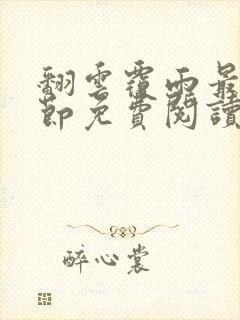 翻雲覆雨最
節免費閱讀
醉心裳